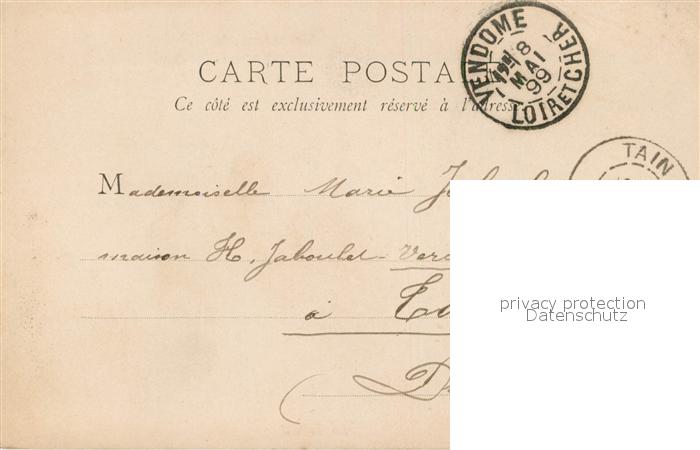 CARTE POSTA
Ce côté est exclusivement réservé à l'adresse
VENDOME
18
MAI
99
LOIR ET CHER
TAIN
Mademoiselle Marie
maison H. Jaboulet-Verc
à
privacy protection
Datenschutz